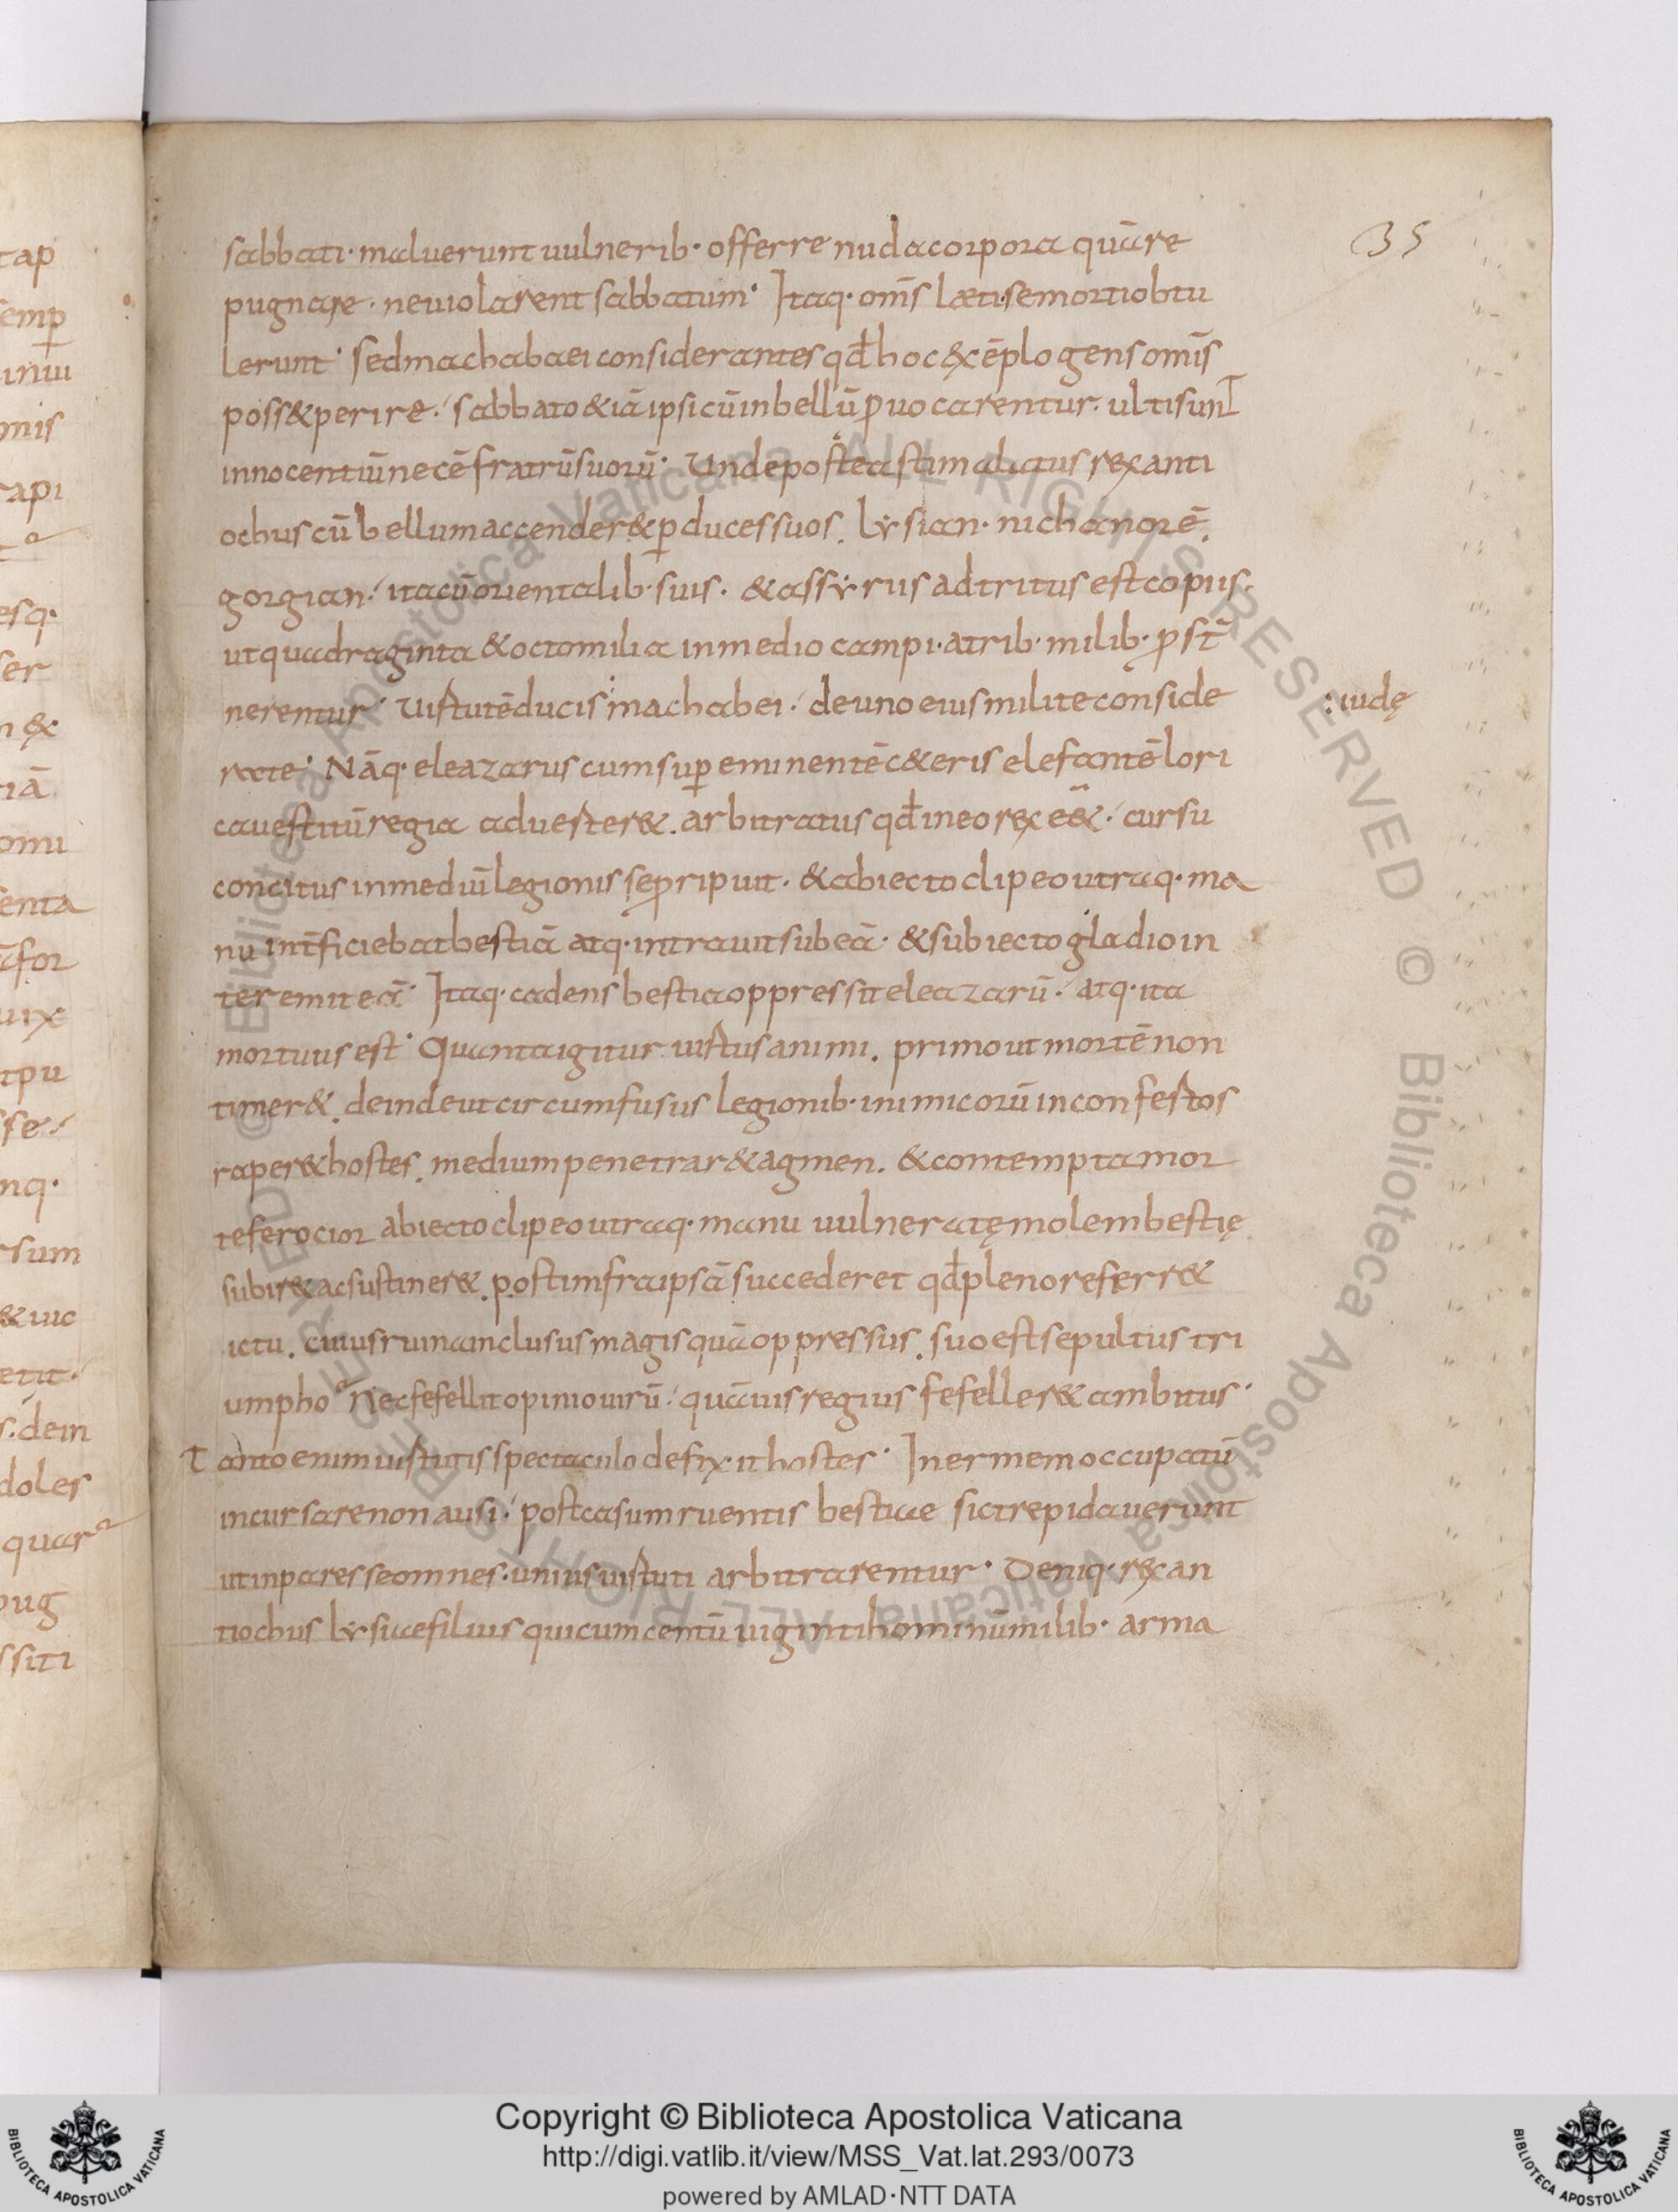 35
sabbati· maluerunt uulnerib· offerre nuda corpora quā re
pugnare· ne uiolarent sabbatum· Itaq· om̄s læti se morti obtu
lerunt· sed machabaei considerantes qđ hoc exēplo gens om̄s
poss& perire· sabbato &iā ipsi cū in bellū ꝓuocarentur· ulti sunt
innocentiū necē fratrū suorū· Unde postea stimulatus rex anti
ochus cū bellum accender& ꝑ duces suos. Lẏsian· nichanorē.
gorgian· ita cū orientalib· suis· & assẏriis adtritus est copiis·
ut quadraginta & octo milia in medio campi· a trib· milib· ꝓst̄
nerentur· Uirtutē ducis machabei· de uno eius milite conside
:iudę
rate· Nāq· eleazarus cum suꝑeminentē c&eris elefantē lori
ca uestitū regia aduerter&. arbitratus qđ in eo rex e&· cursu
concitus in mediū legionis se ꝓripuit· & abiecto clipeo utraq· ma
nu int̄ficiebat bestiā atq· intrauit sub eā· & subiecto gladio in
teremit eā· Itaq· cadens bestia oppressit eleazarū· atq· ita
mortuus est· Quanta igitur uirtus animi. primo ut mortē non
timer&. deinde ut circumfusus legionib· inimicorū in confertos
raper& hostes. medium penetrar& agmen. & contempta mor
te ferocior abiecto clipeo utraq· manu uulneratę molem bestię
subir& ac sustiner&. post infra ipsā succederet qđ pleno referr&
ictu. cuius ruina inclusus magis quā oppressus. suo est sepultus tri
umpho· Nec fefellit opinio uirū· quāuis regius fefeller& ambitus·
Tanto enim uirtutis spectaculo defixit hostes· Inermem occupatū
incursare non ausi· post casum ruentis bestiae sic trepidauerunt
ut inpares se omnes· unius uirtuti arbitrarentur· Deniq· rex an
tiochus lẏsiae filius qui cum centū uiginti hominū milib· arma
tap
emp̱
inui
omis
rapi
esq·
ser
n ex
riā
omi
enta
āfor
uix
tpu
sse·
nq·
rsum
& uic
etit·
s· dein
doles
quar
pug
ssiti
© Biblioteca Apostolica Vaticana ALL RIGHTS RESERVED © Biblioteca Apostolica Vaticana ALL RIGHTS RESERVED
Copyright © Biblioteca Apostolica Vaticana
http://digi.vatlib.it/view/MSS_Vat.lat.293/0073
powered by AMLAD·NTT DATA
BIBLIOTECA APOSTOLICA VATICANA
BIBLIOTECA APOSTOLICA VATICANA